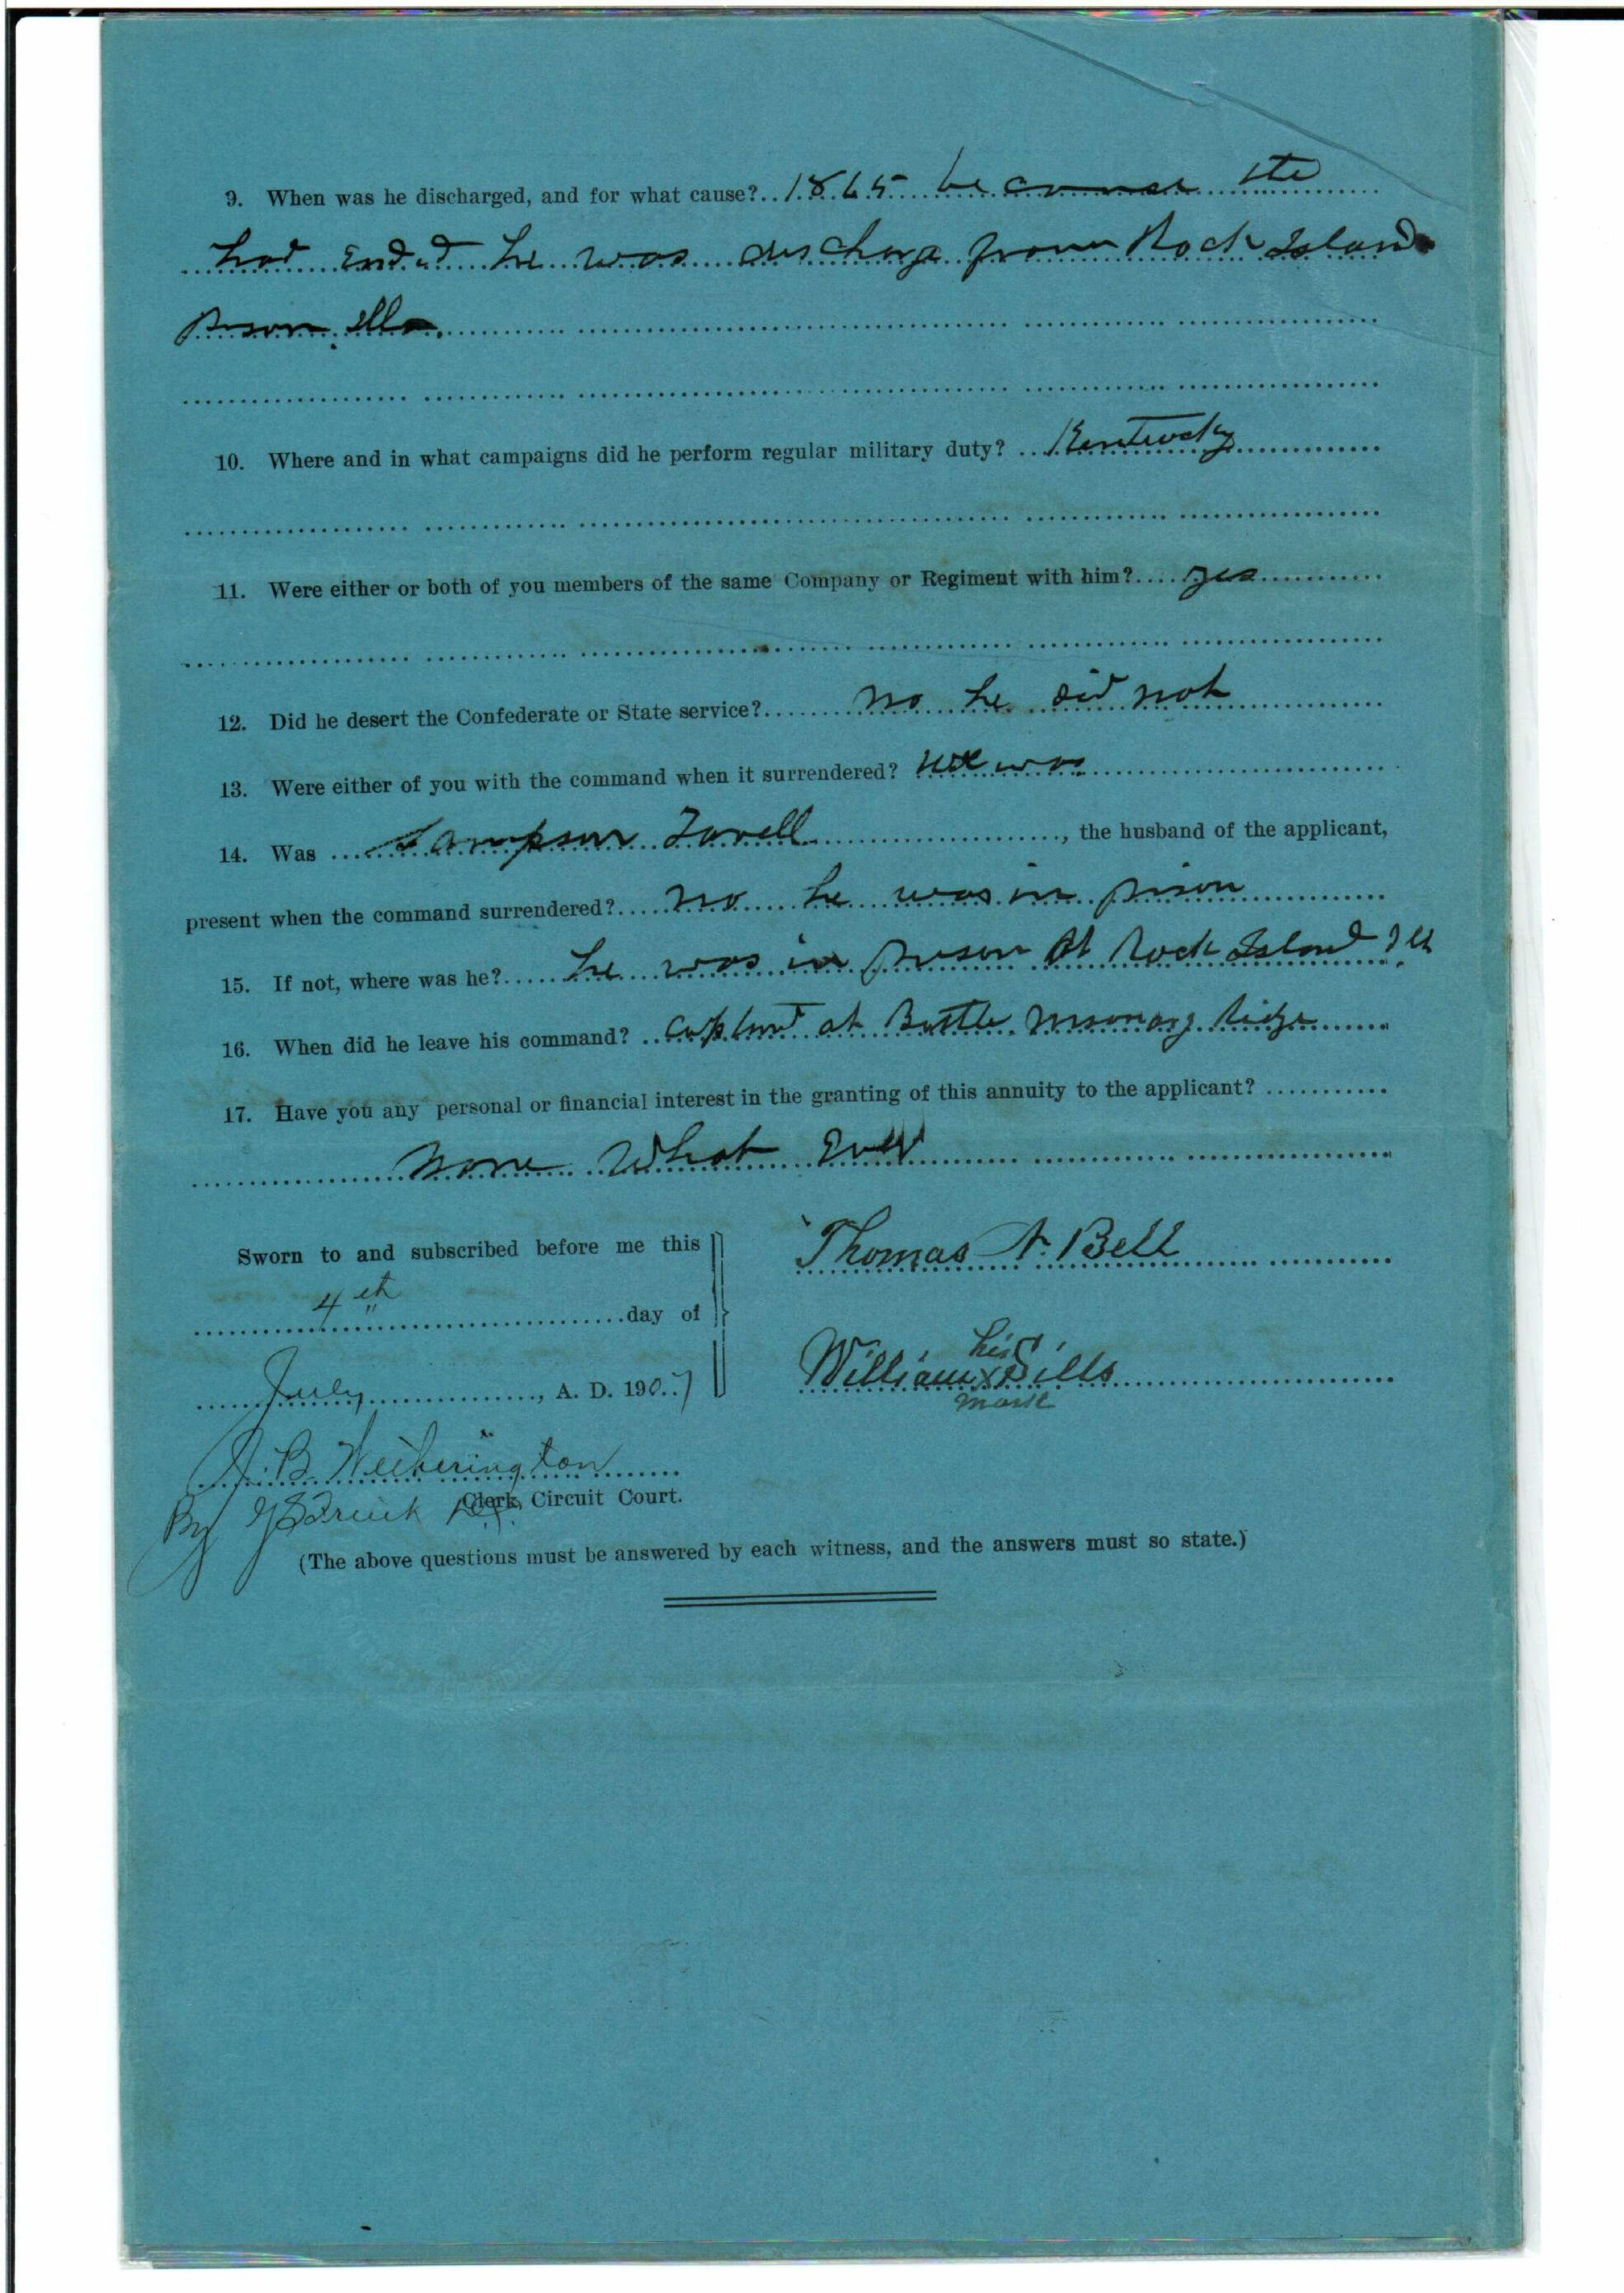 9. When was he discharged, and for what cause? 1865 because the
had ended he was discharge from Rock Island
Prison Ills.
10. Where and in what campaigns did he perform regular military duty? Kentucky
11. Were either or both of you members of the same Company or Regiment with him? yes
12. Did he desert the Confederate or State service? no he did not
13. Were either of you with the command when it surrendered? was
14. Was Sampson , the husband of the applicant,
present when the command surrendered? No he was in prison
15. If not, where was he? he was in prison At Rock Island Ill
16. When did he leave his command? at Battle Ridge
17. Have you any personal or financial interest in the granting of this annuity to the applicant?
None What Ever
Sworn to and subscribed before me this
4th day of
July, A. D. 1907
Thomas A. Bell
his
William X Sills
mark
Wetherington
Clerk, Circuit Court.
By
(The above questions must be answered by each witness, and the answers must so state.)